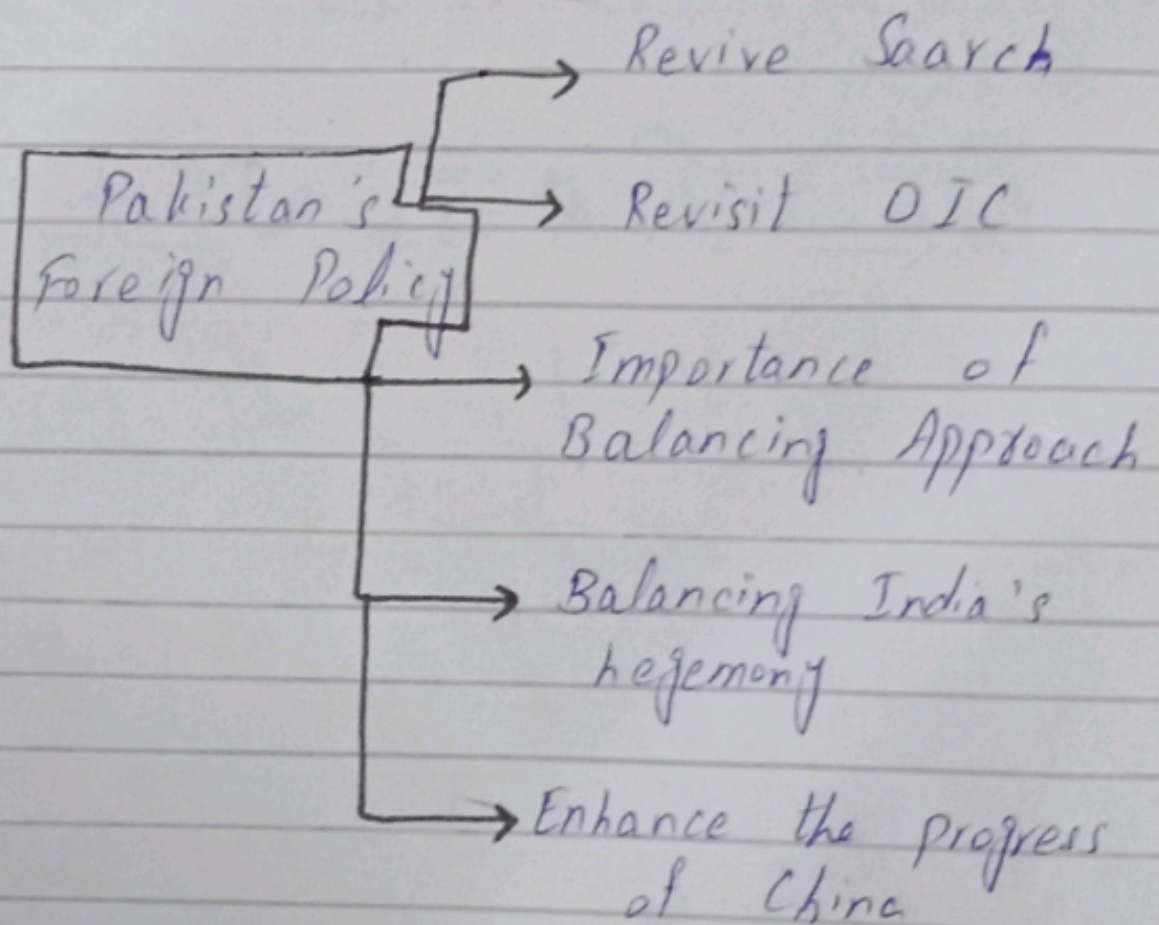 Revive Saarch
Pakistan's
Foreign Policy
Revisit OIC
Importance of
Balancing Approach
Balancing India's
hegemony
Enhance the progress
of China